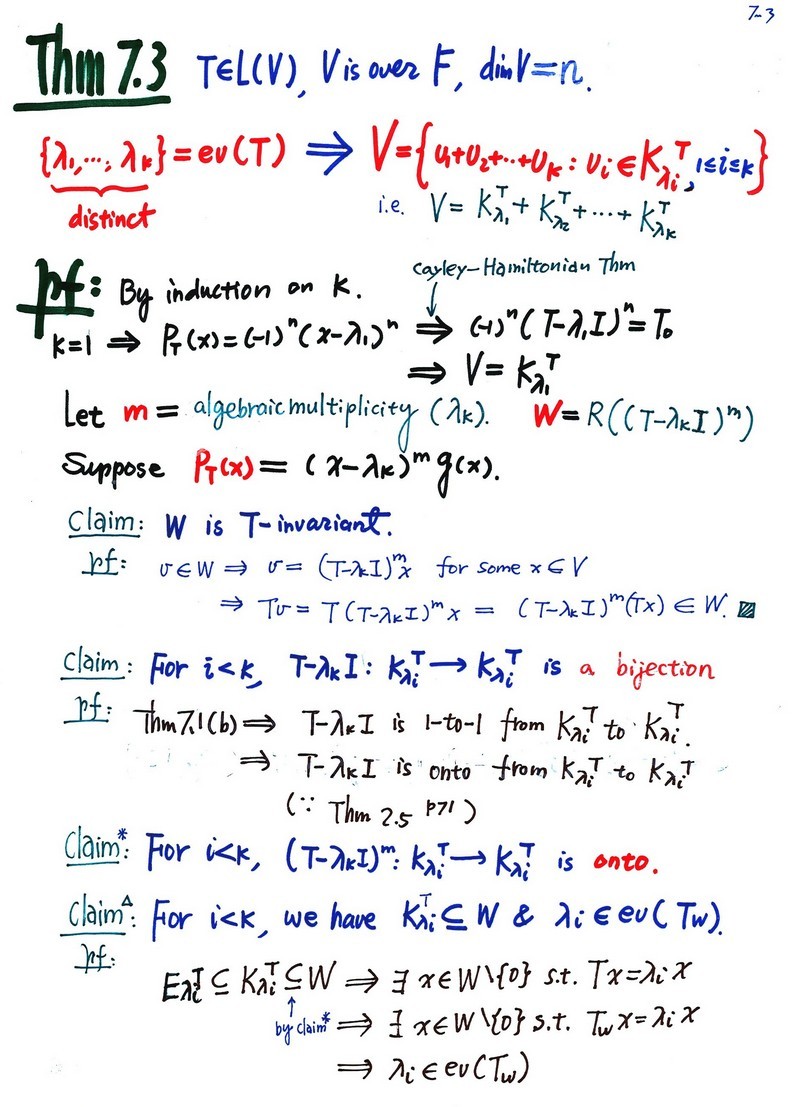 7-3
Thm 7.3 T∈L(V), V is over F, dim V=n.
{λ₁,…, λₖ} = ev(T) ⇒ V={u₁+u₂+…+uₖ : uᵢ ∈ K_{λᵢ}^T, 1≤i≤k}
distinct
i.e. V = K_{λ₁}^T + K_{λ₂}^T + … + K_{λₖ}^T
pf: By induction on k.
Cayley-Hamiltonian Thm
k=1 ⇒ P_T(x) = (-1)ⁿ(x-λ₁)ⁿ ⇒ (-1)ⁿ(T-λ₁I)ⁿ = T₀
⇒ V = K_{λ₁}^T
Let m = algebraic multiplicity (λₖ). W = R((T-λₖI)^m)
Suppose P_T(x) = (x-λₖ)^m g(x).
Claim: W is T-invariant.
pf: v∈W ⇒ v = (T-λₖI)^m x for some x∈V
⇒ Tv = T(T-λₖI)^m x = (T-λₖI)^m(Tx) ∈ W. ▨
Claim: For i<k, T-λₖI : K_{λᵢ}^T → K_{λᵢ}^T is a bijection
pf: Thm 7.1(b) ⇒ T-λₖI is 1-to-1 from K_{λᵢ}^T to K_{λᵢ}^T.
⇒ T-λₖI is onto from K_{λᵢ}^T to K_{λᵢ}^T
(∵ Thm 2.5 p71)
Claim*: For i<k, (T-λₖI)^m : K_{λᵢ}^T → K_{λᵢ}^T is onto.
Claim^Δ: For i<k, we have K_{λᵢ}^T ⊆ W & λᵢ ∈ ev(T_W).
pf:
E_{λᵢ}^T ⊆ K_{λᵢ}^T ⊆ W ⇒ ∃ x∈W\{0} s.t. Tx=λᵢx
by claim* ⇒ ∃ x∈W\{0} s.t. T_W x=λᵢx
⇒ λᵢ ∈ ev(T_W)